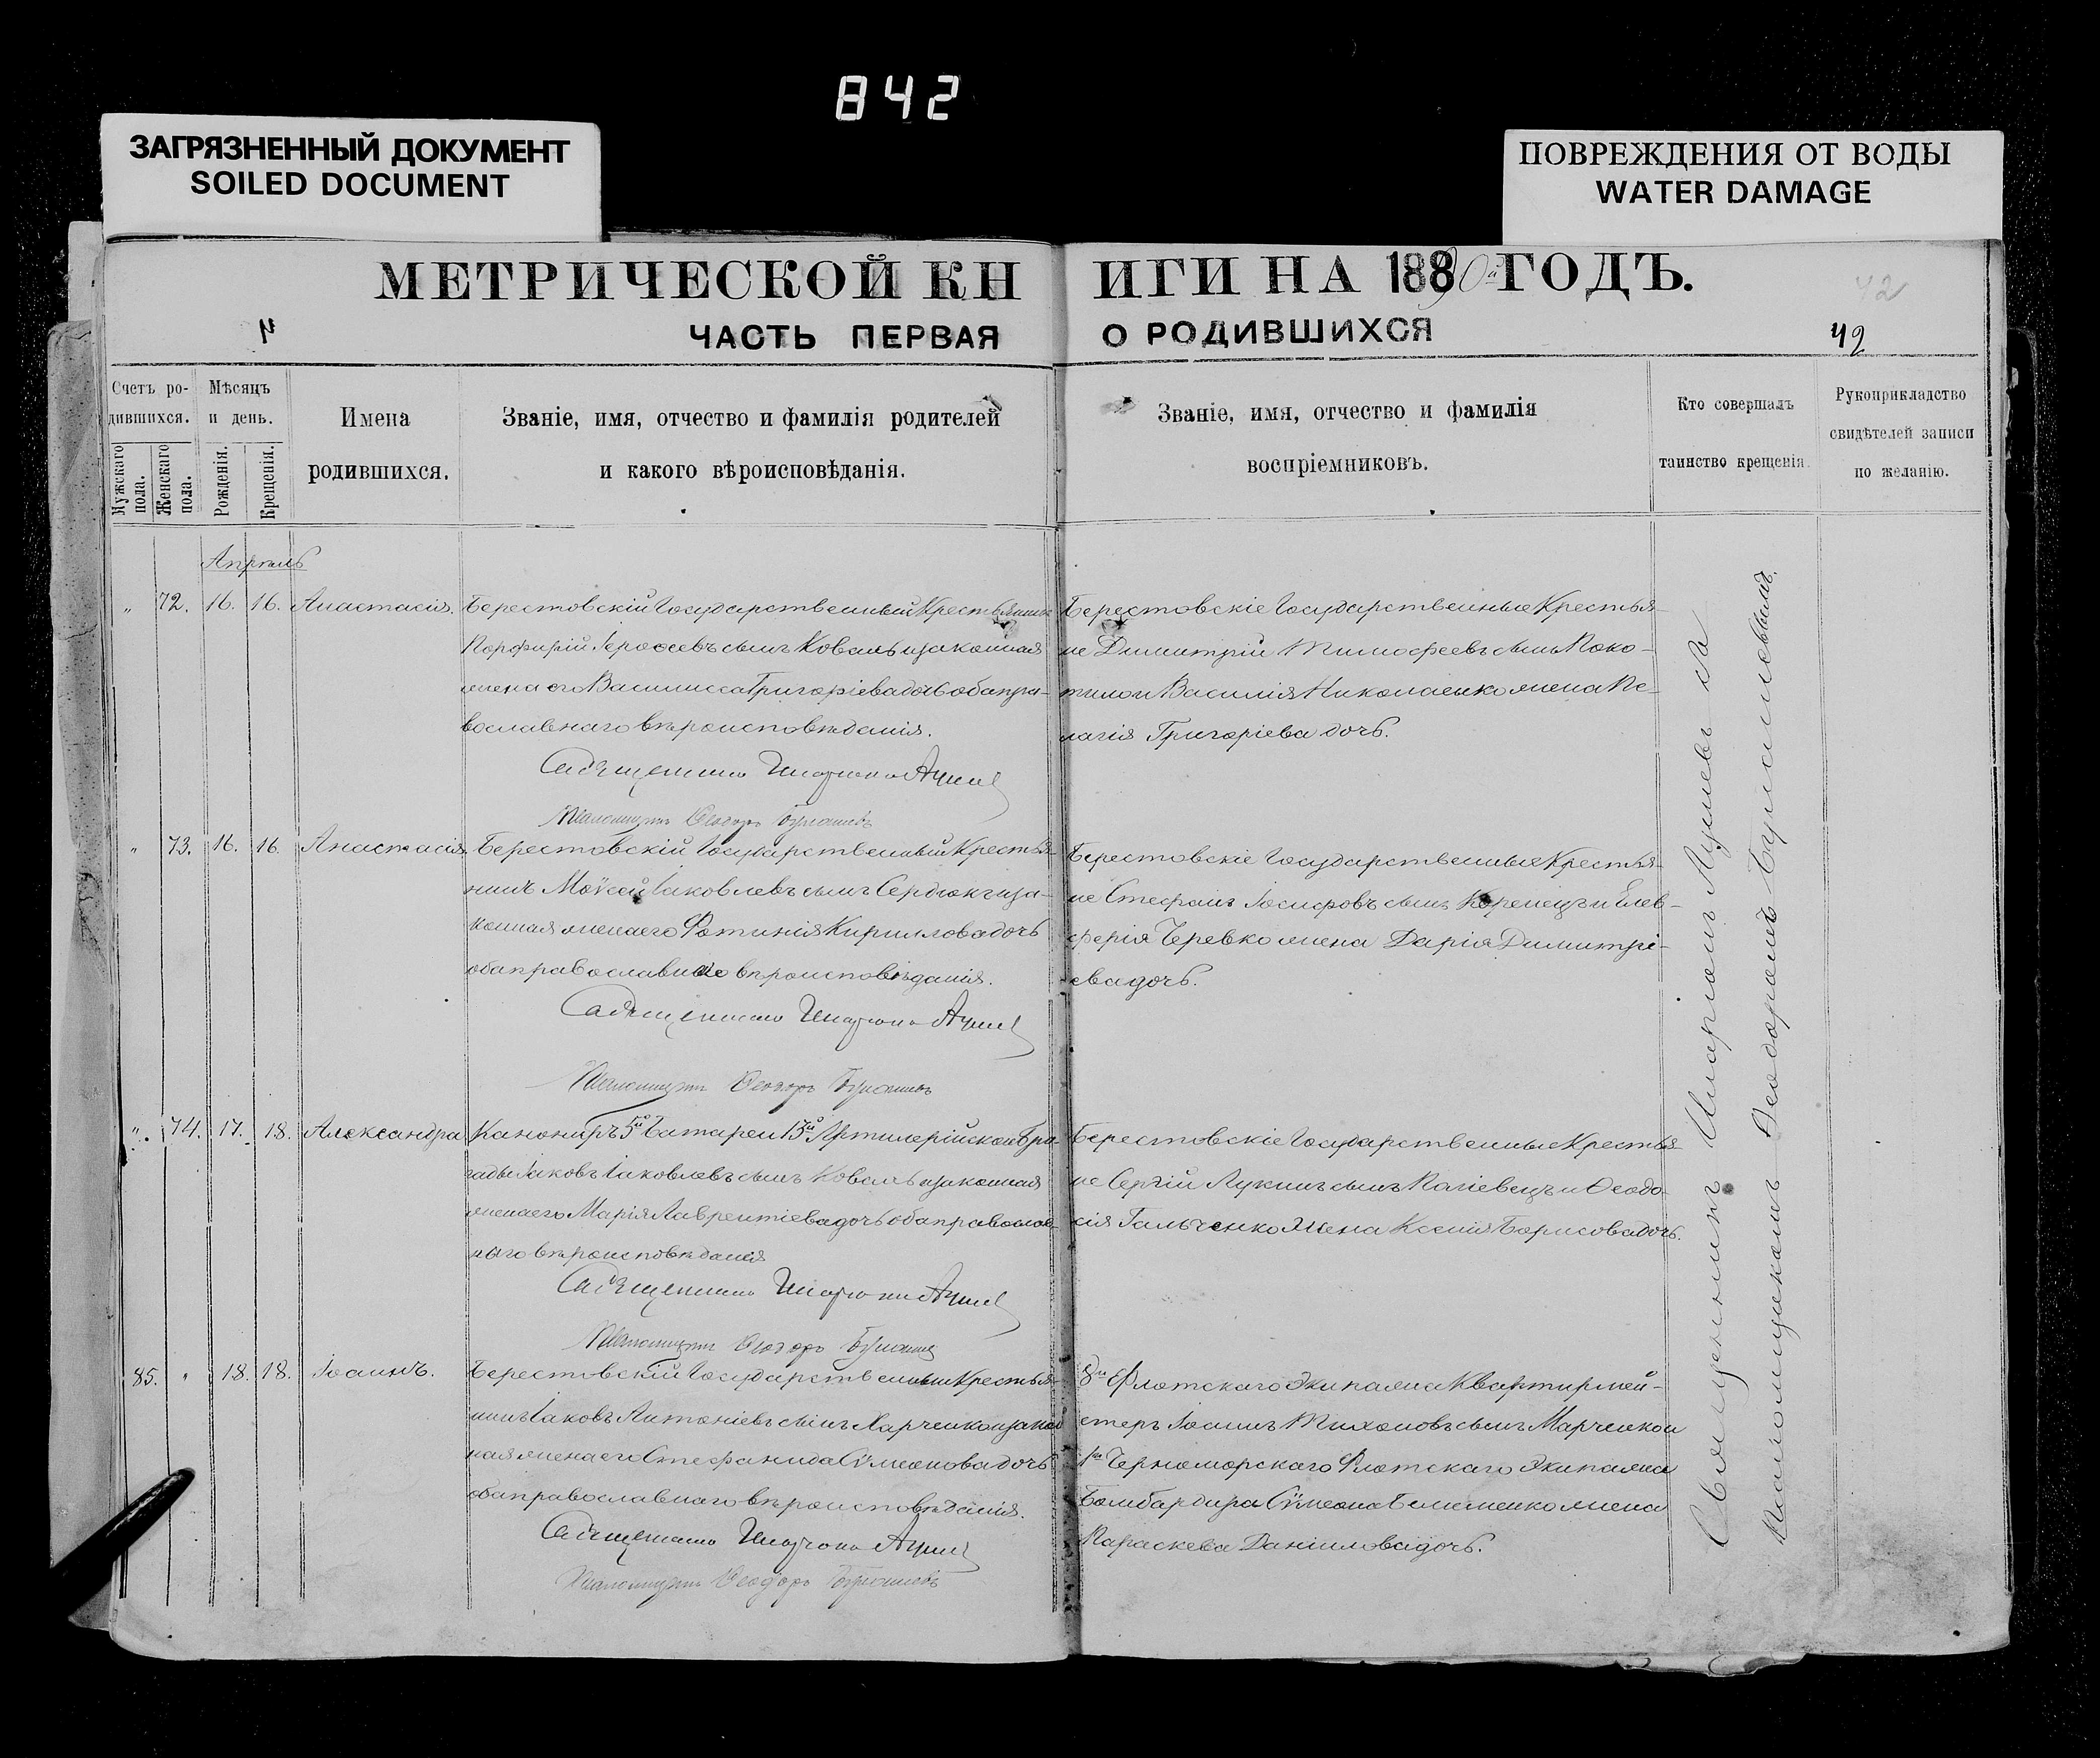 842
ЗАГРЯЗНЕННЫЙ ДОКУМЕНТ
SOILED DOCUMENT
ПОВРЕЖДЕНИЯ ОТ ВОДЫ
WATER DAMAGE
МЕТРИЧЕСКОЙ КНИГИ НА 1890й ГОДЪ.
42
ЧАСТЬ ПЕРВАЯ О РОДИВШИХСЯ
42
Счетъ родившихся.
Мужскаго пола.
Женскаго пола.
Мѣсяцъ и день.
Рожденія.
Крещенія.
Имена
родившихся.
Званіе, имя, отчество и фамилія родителей
и какого вѣроисповѣданія.
Званіе, имя, отчество и фамилія
воспріемниковъ.
Кто совершалъ
таинство крещенія.
Рукоприкладство
свидѣтелей записи
по желанію.
Апрѣль
" 72. 16. 16. Анастасія.
Берестовскій Государственный Крестьянинъ
Порфирій Іерофеевъ сынъ Коваль и законная
жена его Василисса Григоріева дочь оба пра-
вославнаго вѣроисповѣданія.
Священникъ
Псаломщикъ Ѳеодоръ
Берестовскіе Государственные Крестья-
не Димитрій Тимофеевъ сынъ Поко-
тило и Василія Николаенко жена Пе-
лагія Григоріева дочь.
" 73. 16. 16. Анастасія.
Берестовскій Государственный Крестья-
нинъ Моѵсей Іаковлевъ сынъ Сердюкъ и за-
конная жена его Фотинія Кириллова дочь
оба православнаго вѣроисповѣданія.
Священникъ
Псаломщикъ Ѳеодоръ
Берестовскіе Государственные Крестья-
не Стефанъ Іосифовъ сынъ Коренецъ и Елев-
ферія Черевко жена Дарія Димитрі-
ева дочь.
" 74. 17. 18. Александра
Канониръ 5й Батареи 13й Артилерійской Бри-
гады Іаковъ Іаковлевъ сынъ Коваль и законная
жена его Марія Лаврентіева дочь оба православ-
наго вѣроисповѣданія
Священникъ
Псаломщикъ Ѳеодоръ
Берестовскіе Государственные Крестья-
не Сергій Лукинъ сынъ Паліевецъ и Ѳеодо-
сія Гальченко жена Ксенія Борисова дочь.
85. " 18. 18. Іоаннъ.
Берестовскій Государственный Крестья-
нинъ Іаковъ Антоніевъ сынъ Харченко и закон
ная жена его Стефанида Сѵмеонова дочь
оба православнаго вѣроисповѣданія.
Священникъ
Псаломщикъ Ѳеодоръ
8го Флотскаго Экипажа Квартирмей-
стеръ Іоаннъ Тихоновъ сынъ Марченко и
1го Черноморскаго Флотскаго Экипажа
Бомбардира Сѵмеона жена
Параскева Даніилова дочь.
Священникъ Иларіонъ съ
Псаломщикомъ Ѳеодоромъ